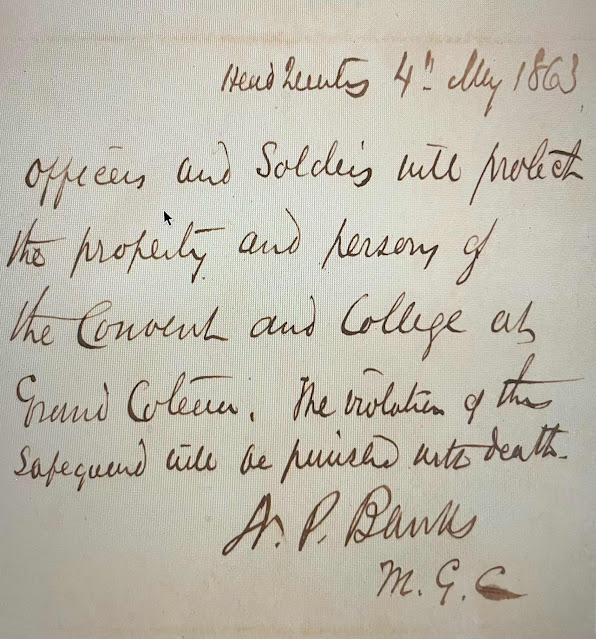 Head Quarters 4" May 1863
Officers and Soldiers will protect
the property and persons of
the Convent and College at
Grand Coteau. The violation of this
Safeguard will be punished with death.
N. P. Banks
M. G. C